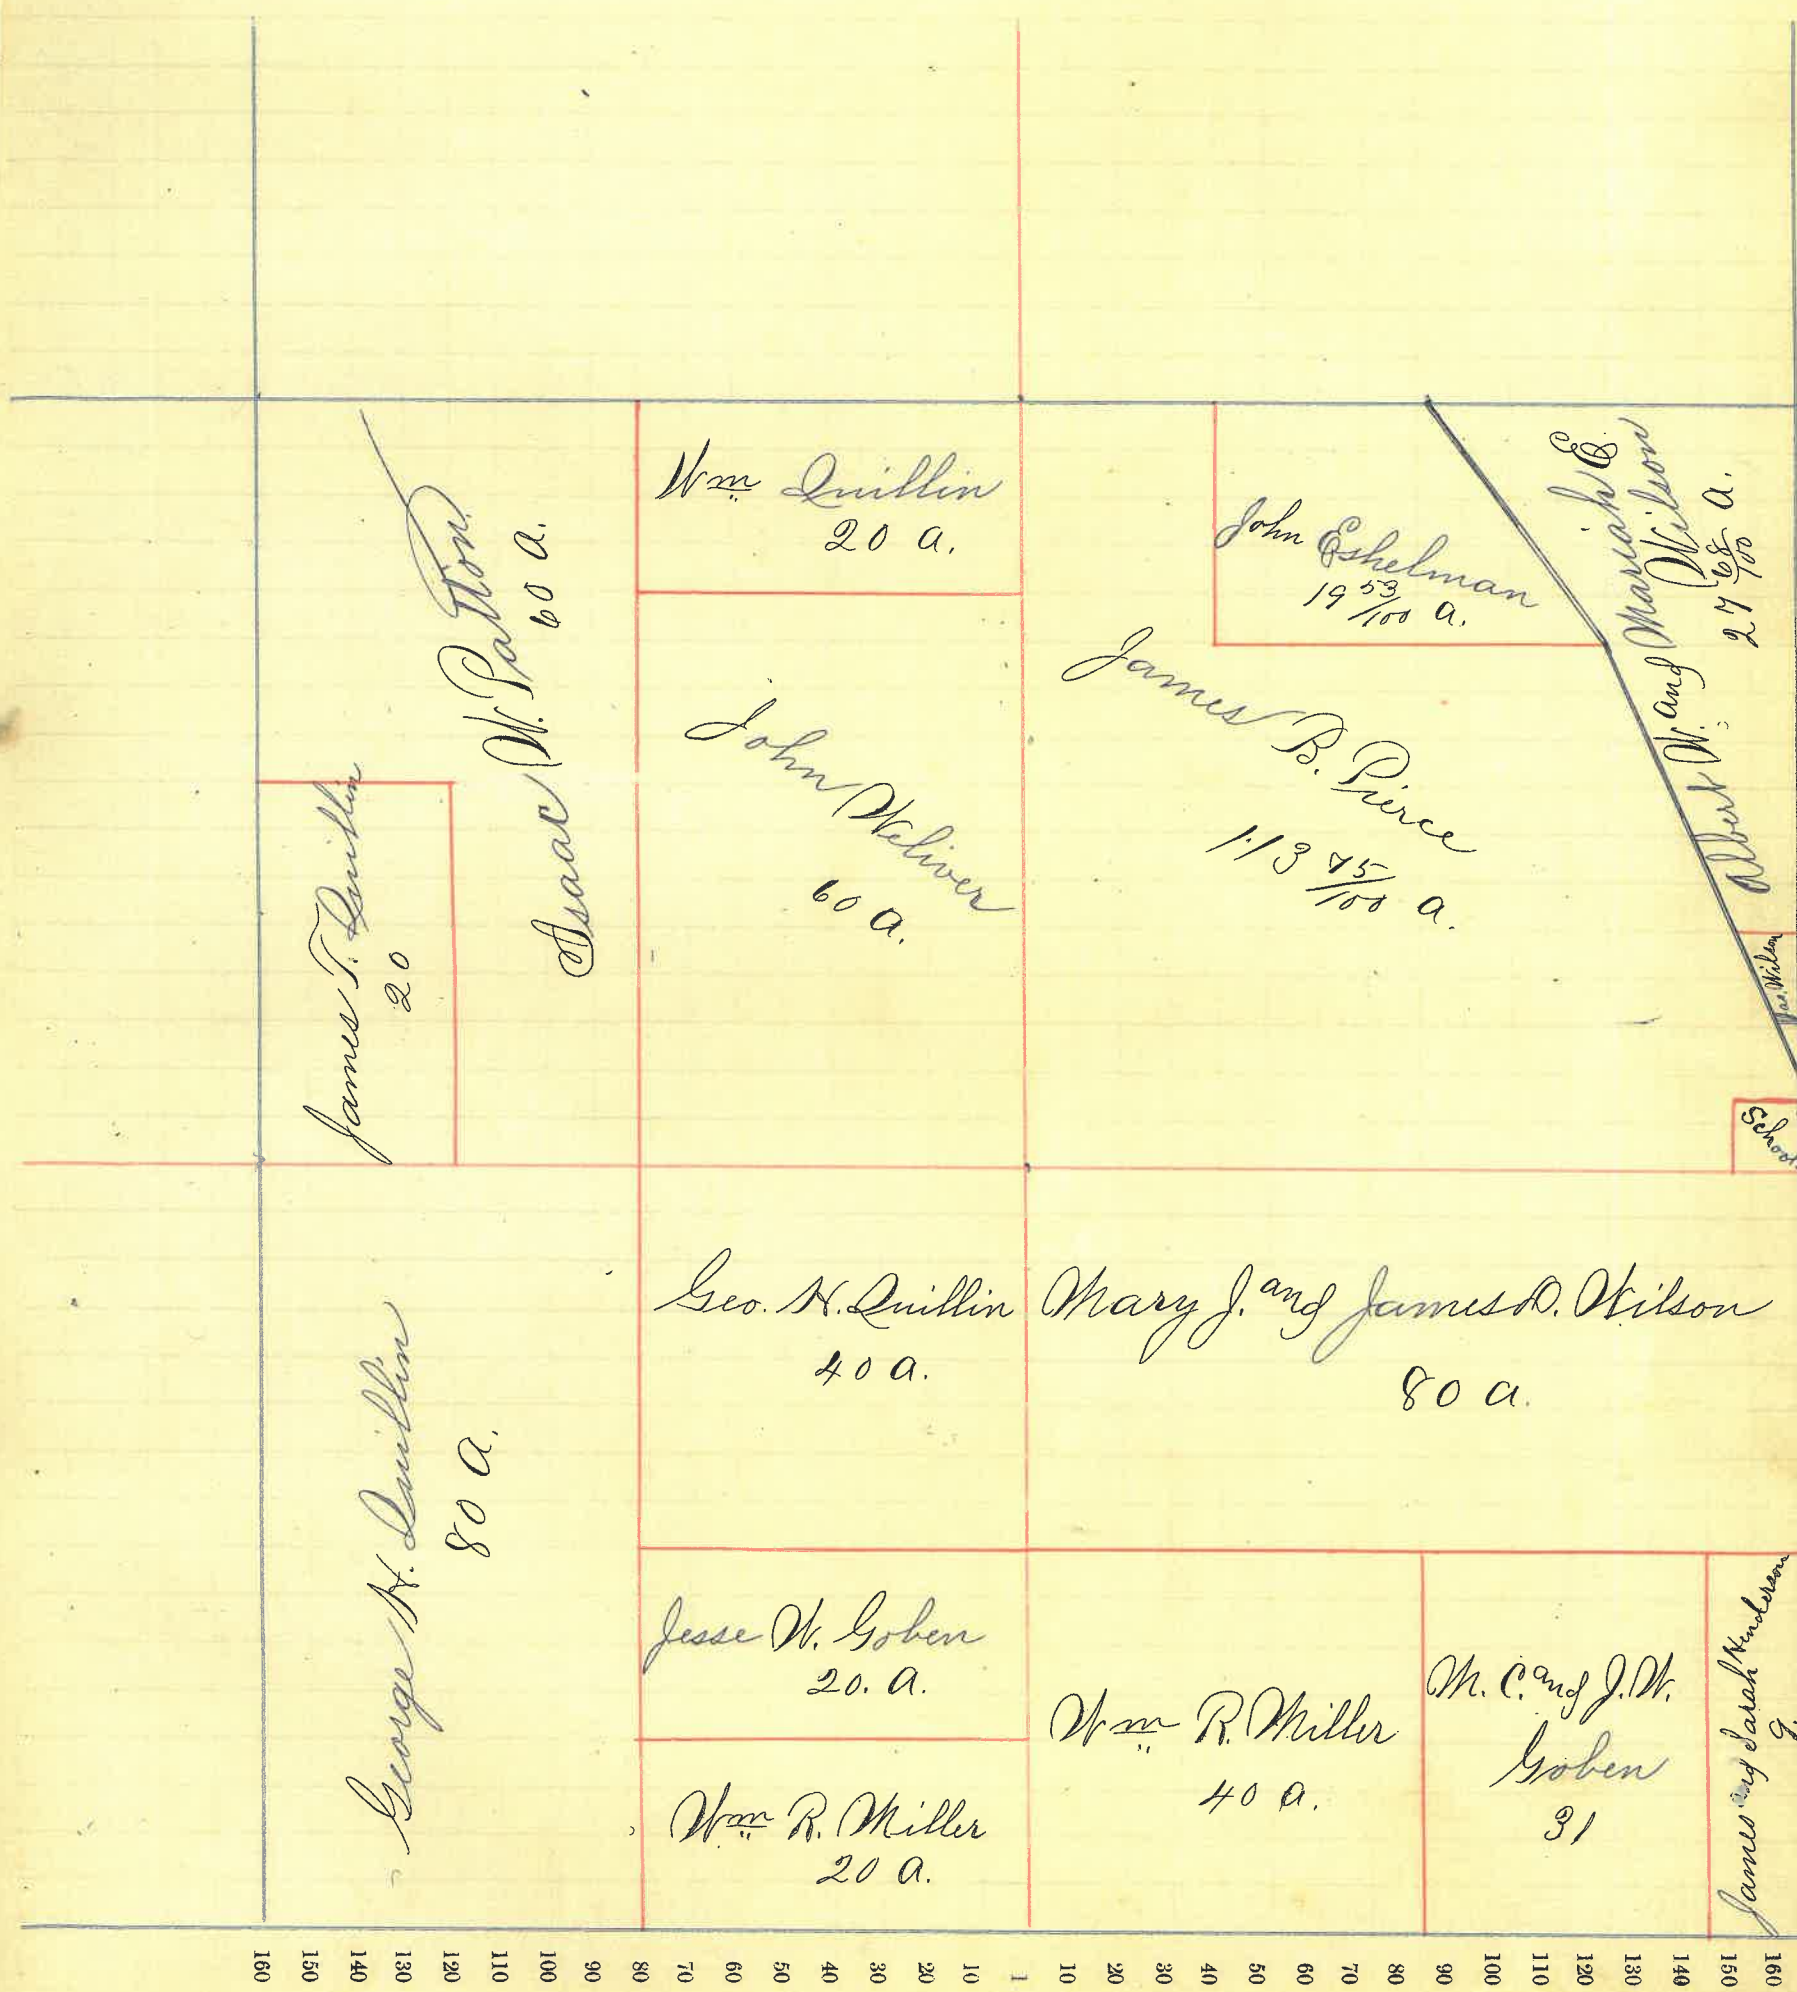 Wm Quillin
20 a.
John Eshelman
19 53/100 a.
Albert W. and Mariah E.
Wilson
27 68/100 a.
Isaac W. Patton
60 a.
John Weliver
60 a.
James B. Pierce
113 75/100 a.
James T. Quillin
20
Jas. Wilson
School
George H. Quillin
80 a.
Geo. H. Quillin
40 a.
Mary J. and James D. Wilson
80 a.
Jesse W. Goben
20. a.
Wm R. Miller
20 a.
Wm R. Miller
40 a.
M. C. and J. W.
Goben
31
James and Sarah Henderson
9.
160 150 140 130 120 110 100 90 80 70 60 50 40 30 20 10 1 10 20 30 40 50 60 70 80 90 100 110 120 130 140 150 160